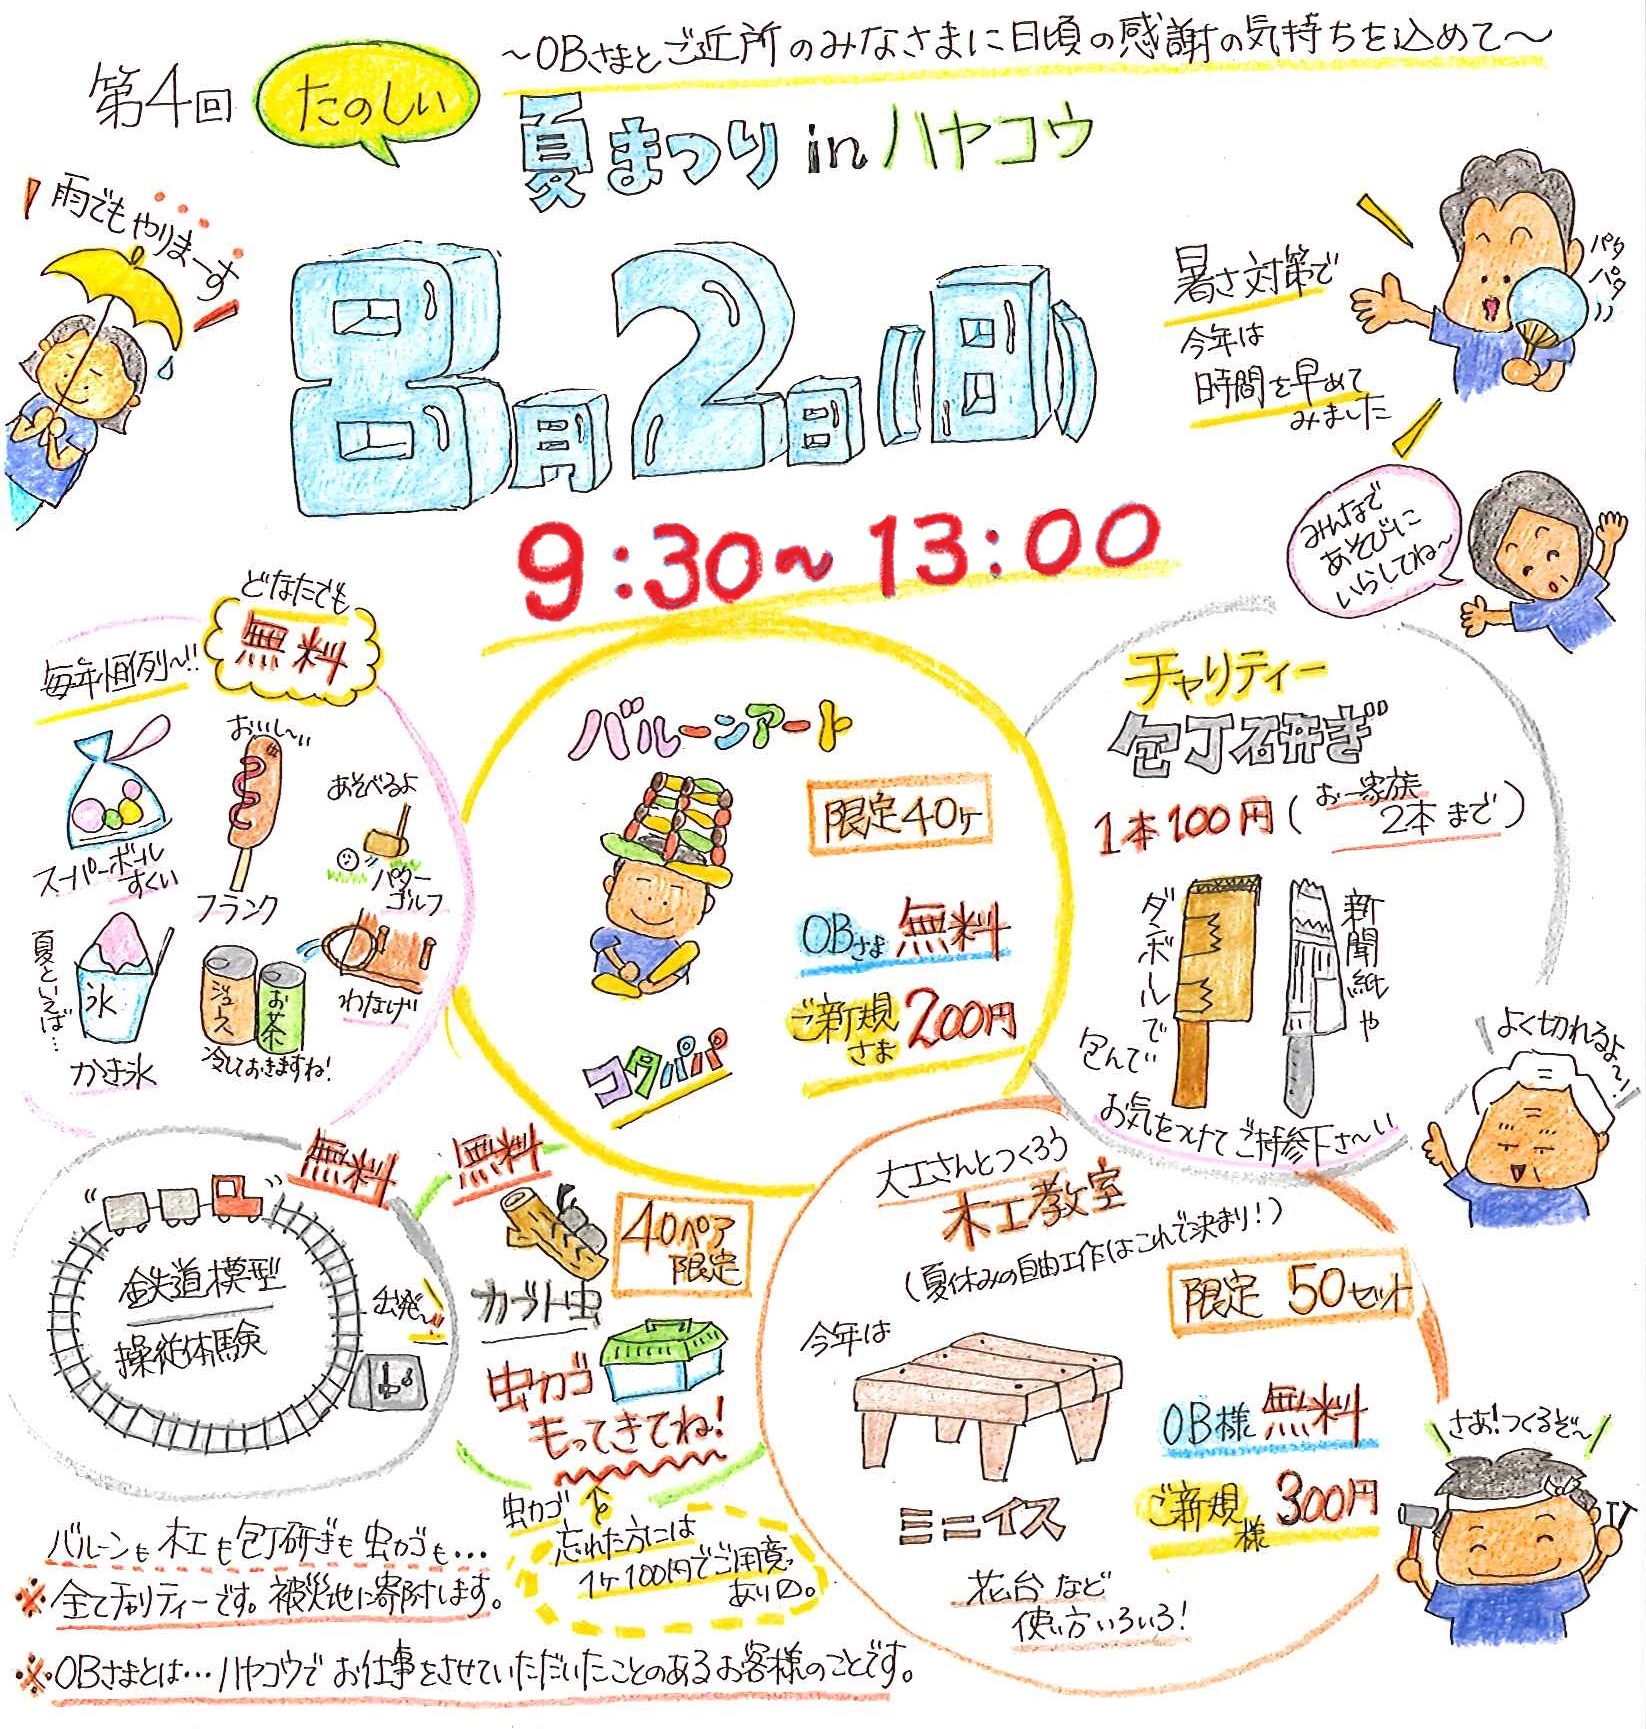 ～OBさまとご近所のみなさまに日頃の感謝の気持ちを込めて～
第4回
たのしい
夏まつり in ハヤコウ
雨でもやりまーす
8月2日(日)
9:30～13:00
暑さ対策で
今年は
時間を早めて
みました
パタ
パタ
みんなで
あそびに
いらしてね～
毎年恒例～!!
どなたでも
無料
スーパーボール
すくい
おいし～い
フランク
あそべるよ
パター
ゴルフ
夏といえば…
氷
かき氷
ジュース
お茶
冷しておきますね!
わなげ
バルーンアート
限定40ヶ
OBさま 無料
ご新規さま 200円
コタパパ
チャリティー
包丁研ぎ
1本100円(お一家族
2本まで)
新聞紙や
ダンボールで
包んで
お気をつけてご持参下さ～い
よく切れるよ～!
無料
鉄道模型
操縦体験
出発～!!
無料
40ペア
限定
カブト虫
虫カゴ
もってきてね!
虫カゴ
忘れた方には
1ヶ100円でご用意
あり〼。
大工さんとつくろう
木工教室
(夏休みの自由工作はこれで決まり!)
限定 50セット
今年は
ミニイス
OB様 無料
ご新規様 300円
花台など
使い方いろいろ!
さあ!つくるぞ～
バルーンも木工も包丁研ぎも虫カゴも…
※全てチャリティーです。被災地に寄附します。
※OBさまとは…ハヤコウでお仕事をさせていただいたことのあるお客様のことです。